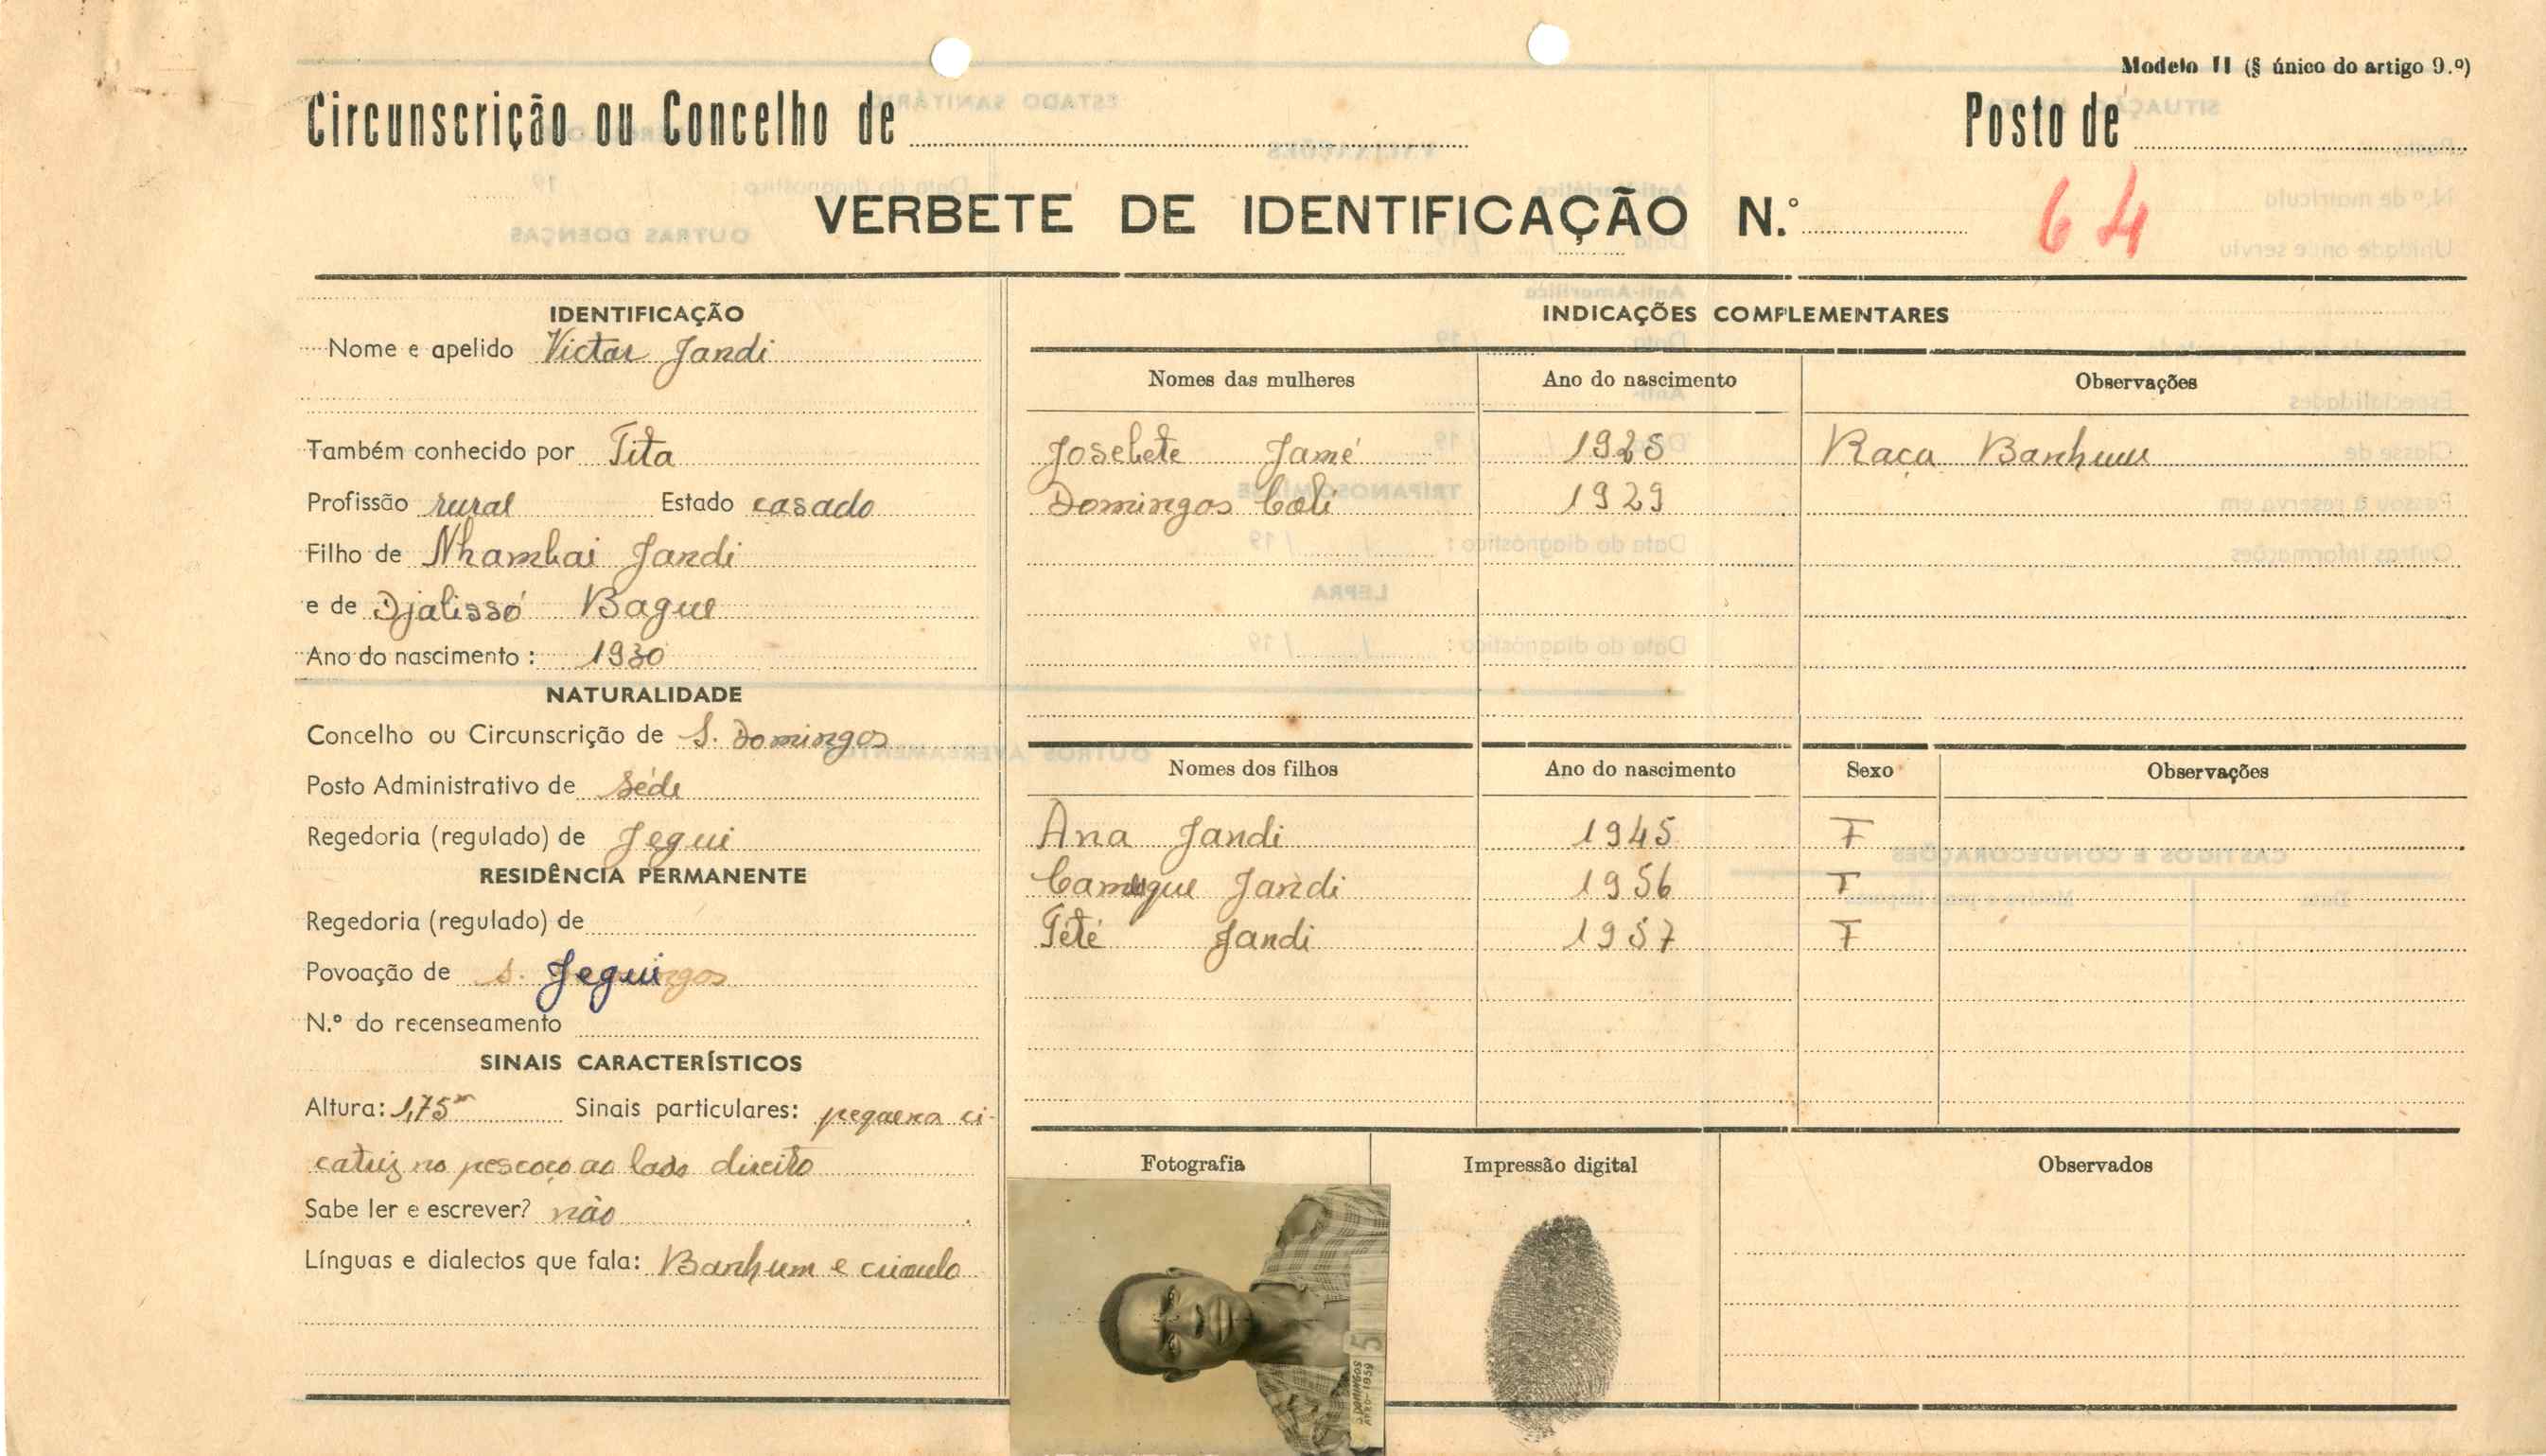 Modelo II (§ único do artigo 9.º)
Circunscrição ou Concelho de
Posto de
VERBETE DE IDENTIFICAÇÃO N.º 64
IDENTIFICAÇÃO
Nome e apelido Victar Jandi
Também conhecido por Tita
Profissão rural Estado casado
Filho de Nhambai Jandi
e de Djalissó Bague
Ano do nascimento: 1930
NATURALIDADE
Concelho ou Circunscrição de S. Domingos
Posto Administrativo de Séde
Regedoria (regulado) de Jegui
RESIDÊNCIA PERMANENTE
Regedoria (regulado) de
Povoação de Jegui
N.º do recenseamento
SINAIS CARACTERÍSTICOS
Altura: 1,75m Sinais particulares: pequena ci-
catriz no pescoço ao lado direito
Sabe ler e escrever? não
Línguas e dialectos que fala: Banhum e crioulo
INDICAÇÕES COMPLEMENTARES
Nomes das mulheres Ano do nascimento Observações
Joselete Jamé 1928 Raça Banhum
Domingos Coli 1929
Nomes dos filhos Ano do nascimento Sexo Observações
Ana Jandi 1945 F
Jandi 1956 F
Teté Jandi 1957 F
Fotografia Impressão digital Observados
S. DOMINGOS
1959